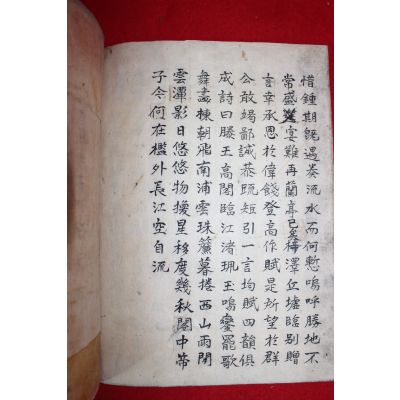 惜鍾期旣遇奏流水而何慙嗚呼勝地不
常盛筵宴難再蘭亭已矣梓澤丘墟臨別贈
言幸承恩於偉餞登高作賦是所望於群
公敢竭鄙誠恭疏短引一言均賦四韻俱
成詩曰滕王高閣臨江渚珮玉鳴鸞罷歌
舞畵棟朝飛南浦雲珠簾暮捲西山雨閒
雲潭影日悠悠物換星移度幾秋閣中帝
子今何在檻外長江空自流